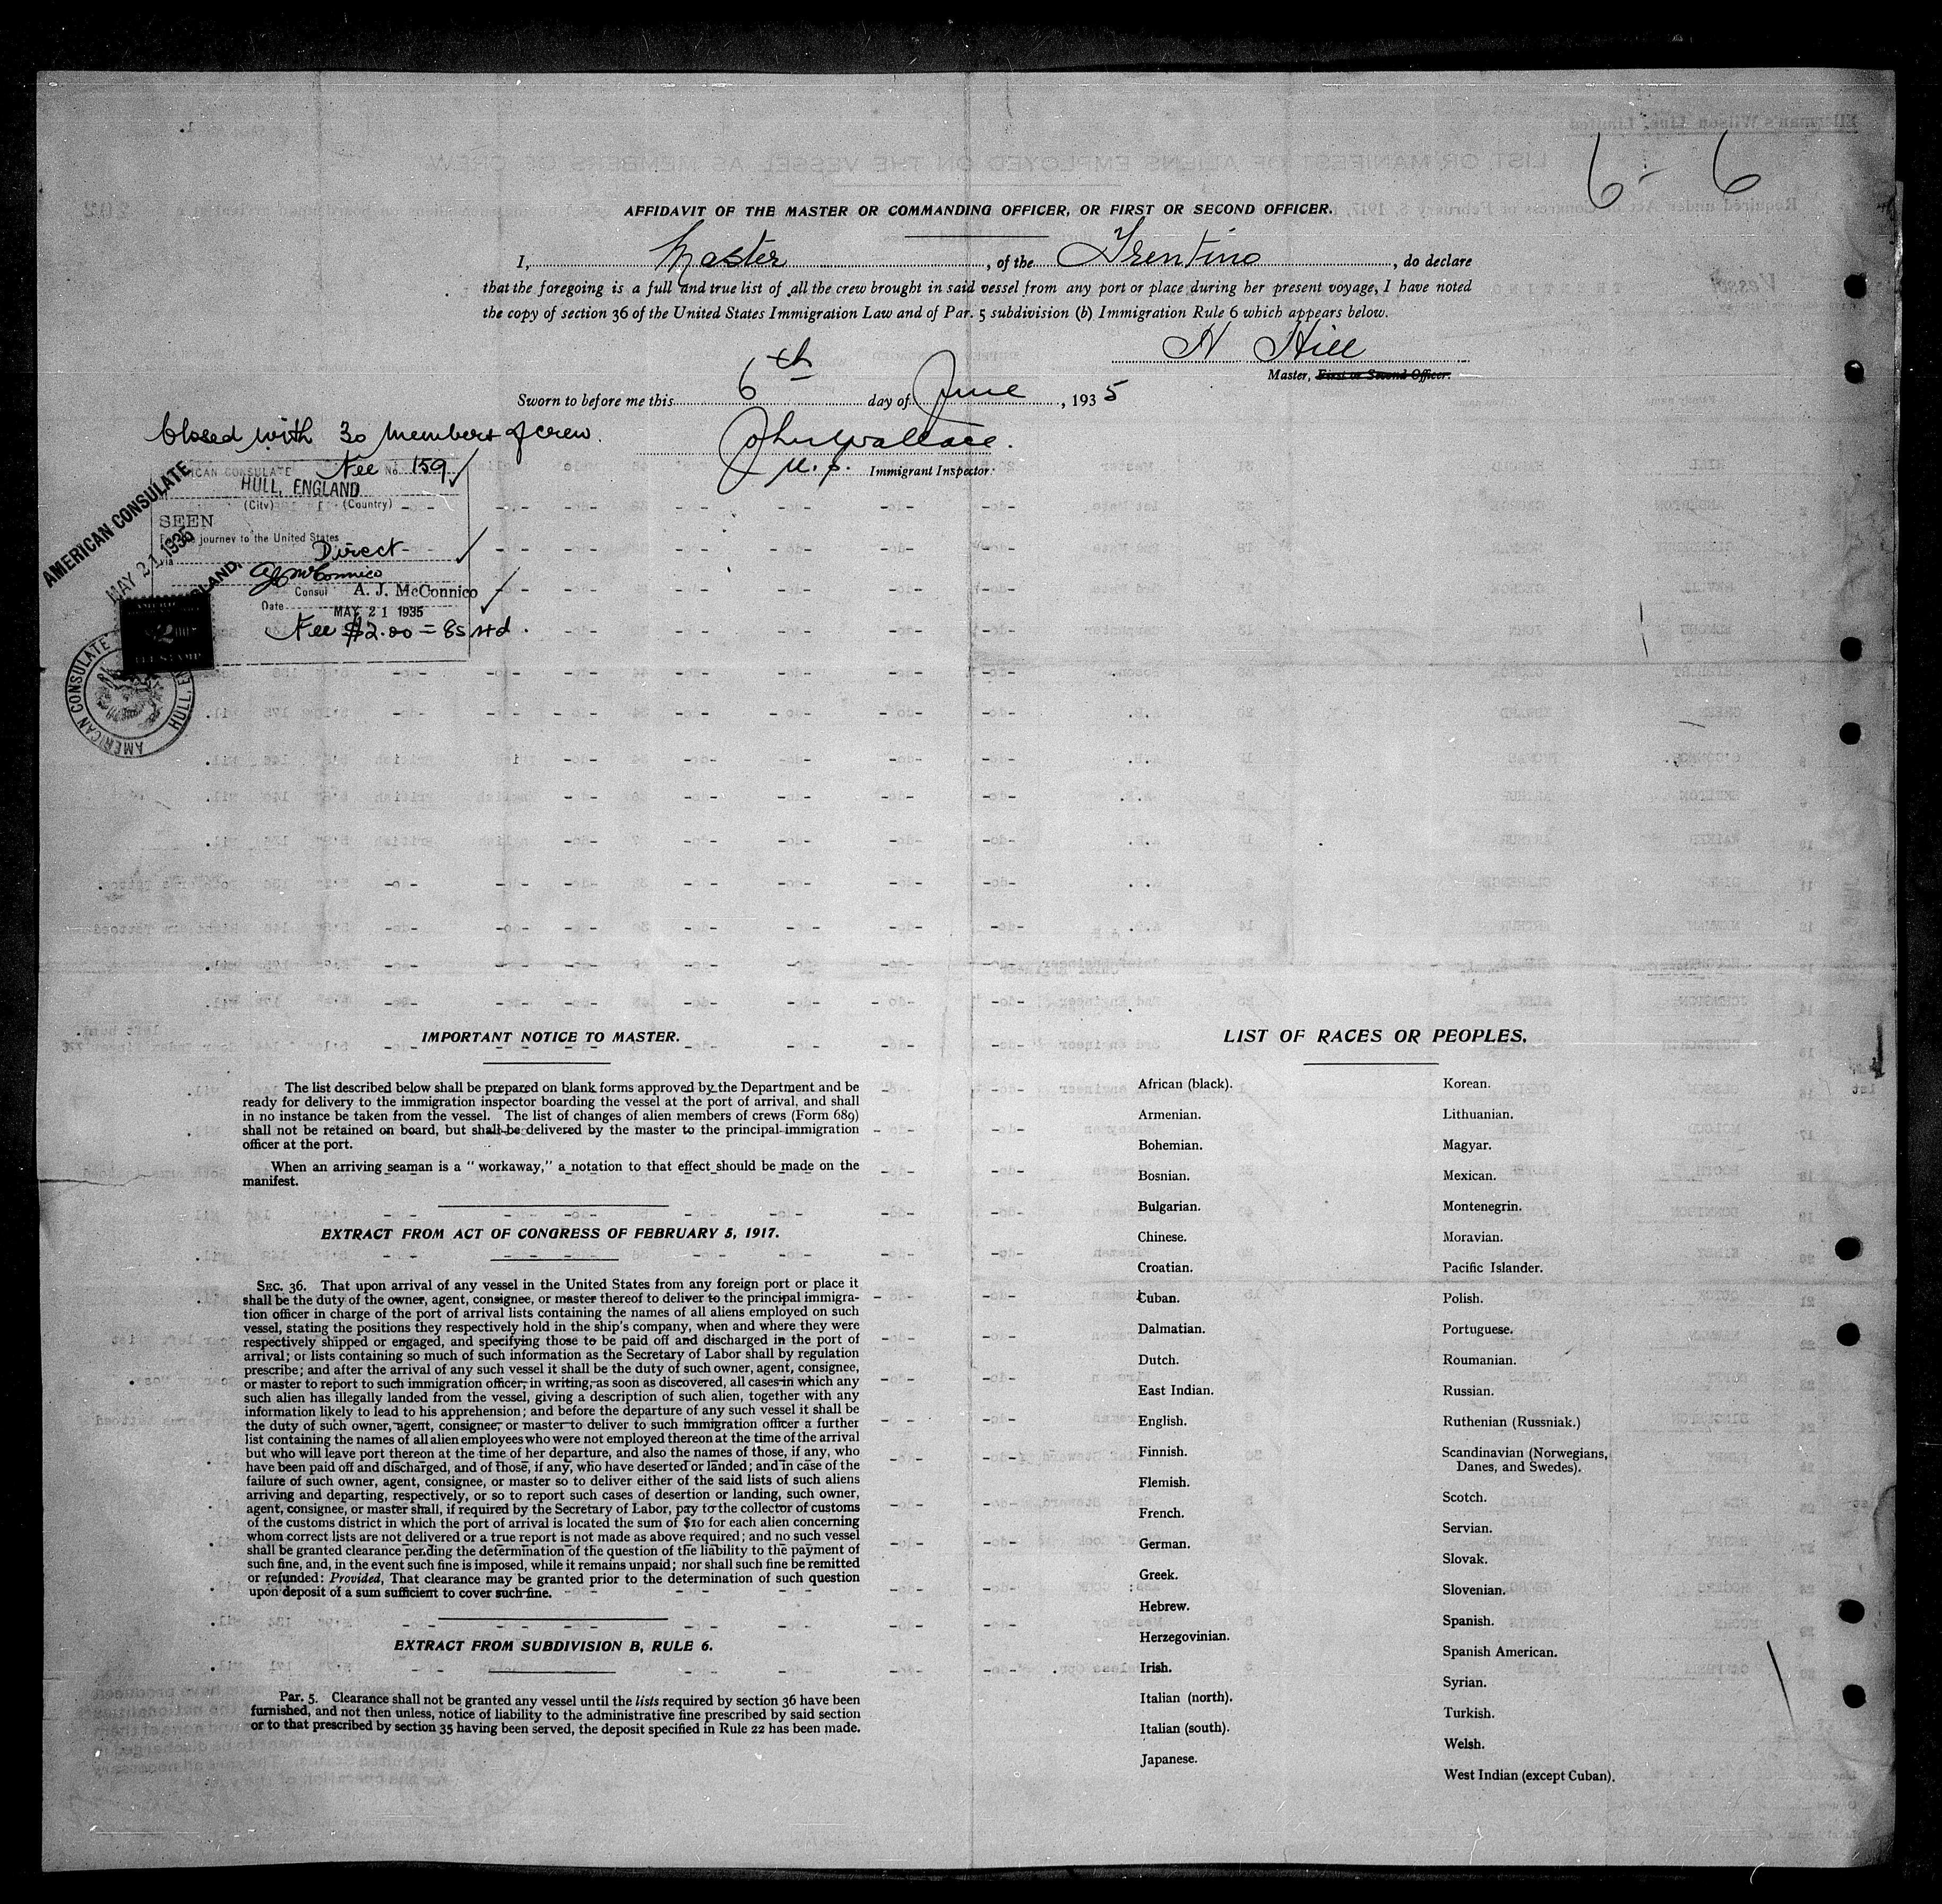 6 - 6
AFFIDAVIT OF THE MASTER OR COMMANDING OFFICER, OR FIRST OR SECOND OFFICER.
I, Master, of the Trentino, do declare
that the foregoing is a full and true list of all the crew brought in said vessel from any port or place during her present voyage, I have noted
the copy of section 36 of the United States Immigration Law and of Par. 5 subdivision (b) Immigration Rule 6 which appears below.
N Hill
Master, First or Second Officer.
Sworn to before me this 6th day of June, 1935
John Wallace.
U.S. Immigrant Inspector.
Closed with 30 members of crew.
AMERICAN CONSULATE
MAY 21 1935
AMERICAN CONSULATE Fee No. 159
HULL, ENGLAND
(City) (Country)
SEEN
For the journey to the United States
via Direct
A J McConnico
Consul A. J. McConnico
Date MAY 21 1935
Fee $2.00 = 8s 4d.
AMERICAN CONSULATE
HULL, EN
IMPORTANT NOTICE TO MASTER.
The list described below shall be prepared on blank forms approved by the Department and be
ready for delivery to the immigration inspector boarding the vessel at the port of arrival, and shall
in no instance be taken from the vessel. The list of changes of alien members of crews (Form 689)
shall not be retained on board, but shall be delivered by the master to the principal immigration
officer at the port.
When an arriving seaman is a "workaway," a notation to that effect should be made on the
manifest.
EXTRACT FROM ACT OF CONGRESS OF FEBRUARY 5, 1917.
SEC. 36. That upon arrival of any vessel in the United States from any foreign port or place it
shall be the duty of the owner, agent, consignee, or master thereof to deliver to the principal immigra-
tion officer in charge of the port of arrival lists containing the names of all aliens employed on such
vessel, stating the positions they respectively hold in the ship's company, when and where they were
respectively shipped or engaged, and specifying those to be paid off and discharged in the port of
arrival; or lists containing so much of such information as the Secretary of Labor shall by regulation
prescribe; and after the arrival of any such vessel it shall be the duty of such owner, agent, consignee,
or master to report to such immigration officer, in writing, as soon as discovered, all cases in which any
such alien has illegally landed from the vessel, giving a description of such alien, together with any
information likely to lead to his apprehension; and before the departure of any such vessel it shall be
the duty of such owner, agent, consignee, or master to deliver to such immigration officer a further
list containing the names of all alien employees who were not employed thereon at the time of the arrival
but who will leave port thereon at the time of her departure, and also the names of those, if any, who
have been paid off and discharged, and of those, if any, who have deserted or landed; and in case of the
failure of such owner, agent, consignee, or master so to deliver either of the said lists of such aliens
arriving and departing, respectively, or so to report such cases of desertion or landing, such owner,
agent, consignee, or master shall, if required by the Secretary of Labor, pay to the collector of customs
of the customs district in which the port of arrival is located the sum of $10 for each alien concerning
whom correct lists are not delivered or a true report is not made as above required; and no such vessel
shall be granted clearance pending the determination of the question of the liability to the payment of
such fine, and, in the event such fine is imposed, while it remains unpaid; nor shall such fine be remitted
or refunded: Provided, That clearance may be granted prior to the determination of such question
upon deposit of a sum sufficient to cover such fine.
EXTRACT FROM SUBDIVISION B, RULE 6.
Par. 5. Clearance shall not be granted any vessel until the lists required by section 36 have been
furnished, and not then unless, notice of liability to the administrative fine prescribed by said section
or to that prescribed by section 35 having been served, the deposit specified in Rule 22 has been made.
LIST OF RACES OR PEOPLES.
African (black).
Armenian.
Bohemian.
Bosnian.
Bulgarian.
Chinese.
Croatian.
Cuban.
Dalmatian.
Dutch.
East Indian.
English.
Finnish.
Flemish.
French.
German.
Greek.
Hebrew.
Herzegovinian.
Irish.
Italian (north).
Italian (south).
Japanese.
Korean.
Lithuanian.
Magyar.
Mexican.
Montenegrin.
Moravian.
Pacific Islander.
Polish.
Portuguese.
Roumanian.
Russian.
Ruthenian (Russniak.)
Scandinavian (Norwegians,
Danes, and Swedes).
Scotch.
Servian.
Slovak.
Slovenian.
Spanish.
Spanish American.
Syrian.
Turkish.
Welsh.
West Indian (except Cuban).